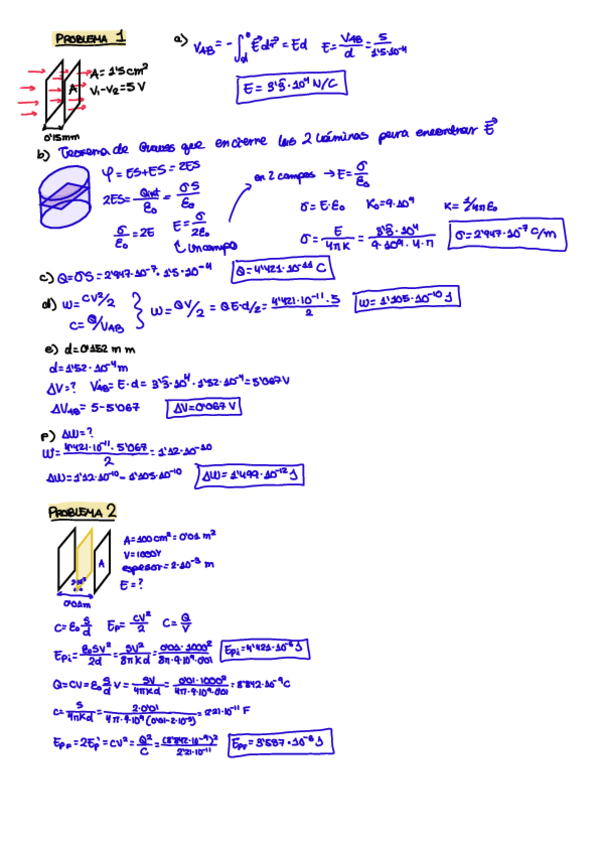 PROBLEMA 1
a) V_AB = -∫_d^0 E⃗ dr⃗ = Ed E = V_AB/d = 5/1'5·10⁻⁴
A = 1'5 cm²
V₁-V₂ = 5 V
A
0'15 mm
E = 3'3̂·10⁴ N/C
b) Teorema de Gauss que encierre las 2 láminas para encontrar E⃗
φ = ES+ES = 2ES
2ES = Qint/ε₀ = σS/ε₀
σ/ε₀ = 2E E = σ/2ε₀
↳ un campo
en 2 campos → E = σ/ε₀
σ = E·ε₀ K₀ = 9·10⁹ K = 1/4πε₀
σ = E/4πK = 3'3̂·10⁴/9·10⁹·4·π σ = 2'947·10⁻⁷ C/m
c) Q = σS = 2'947·10⁻⁷·1'5·10⁻⁴ Q = 4'421·10⁻¹¹ C
d) W = CV²/2
C = Q/V_AB
W = QV/2 = QE·d/2 = 4'421·10⁻¹¹·5/2 W = 1'105·10⁻¹⁰ J
e) d = 0'152 mm
d = 1'52·10⁻⁴ m
ΔV = ? V_AB = E·d = 3'3̂·10⁴·1'52·10⁻⁴ = 5'067 V
ΔV_AB = 5-5'067 ΔV = 0'067 V
f) ΔW = ?
W = 4'421·10⁻¹¹·5'067/2 = 1'12·10⁻¹⁰
ΔW = 1'12·10⁻¹⁰ - 1'105·10⁻¹⁰ ΔW = 1'499·10⁻¹² J
PROBLEMA 2
A = 100 cm² = 0'01 m²
V = 1000V
espesor = 2·10⁻³ m
E = ?
A
0'01m
C = ε₀ S/d Ep = CV²/2 C = Q/V
Epi = ε₀SV²/2d = SV²/8πKd = 0'01·1000²/8π·9·10⁹·0'01 Epi = 4'421·10⁻⁶ J
Q = CV = ε₀ S/d V = SV/4πKd = 0'01·1000²/4π·9·10⁹·0'01 = 8'842·10⁻⁹ C
C = S/4πKd = 2·0'01/4π·9·10⁹(0'01-2·10⁻³) = 2'21·10⁻¹¹ F
EpF = 2Ep' = CV² = Q²/C = (8'842·10⁻⁹)²/2'21·10⁻¹¹ EpF = 3'537·10⁻⁶ J